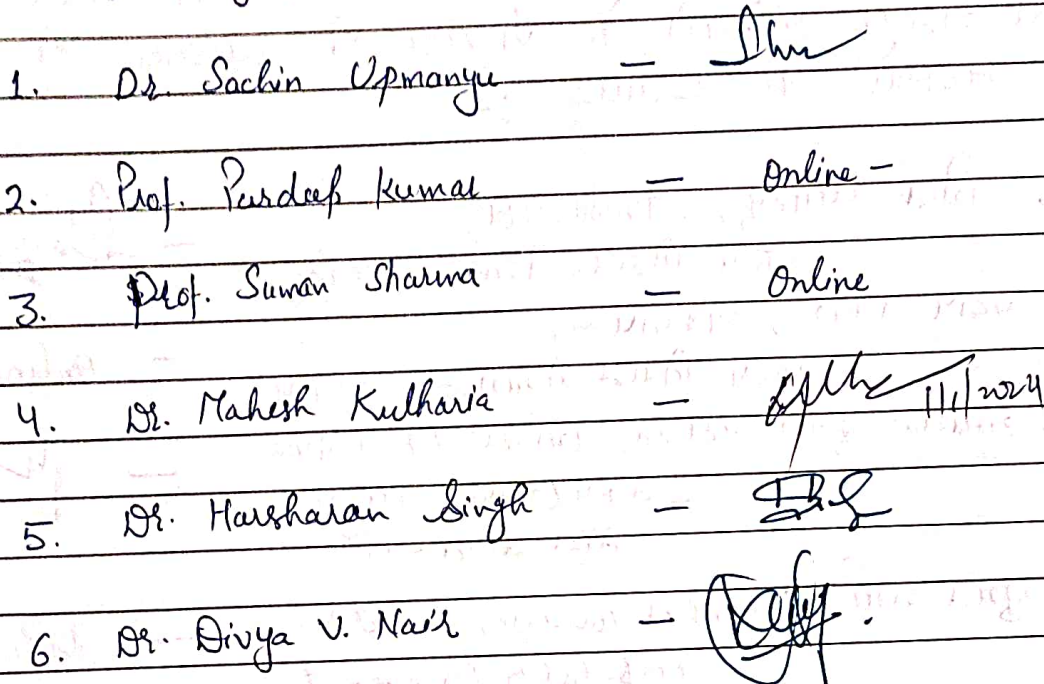 1. Dr. Sachin Upmanyu —
2. Prof. Pardeep Kumar — Online –
3. Prof. Suman Sharma — Online
4. Dr. Mahesh Kulharia — 11/1/2024
5. Dr. Harsharan Singh —
6. Dr. Divya V. Nair —